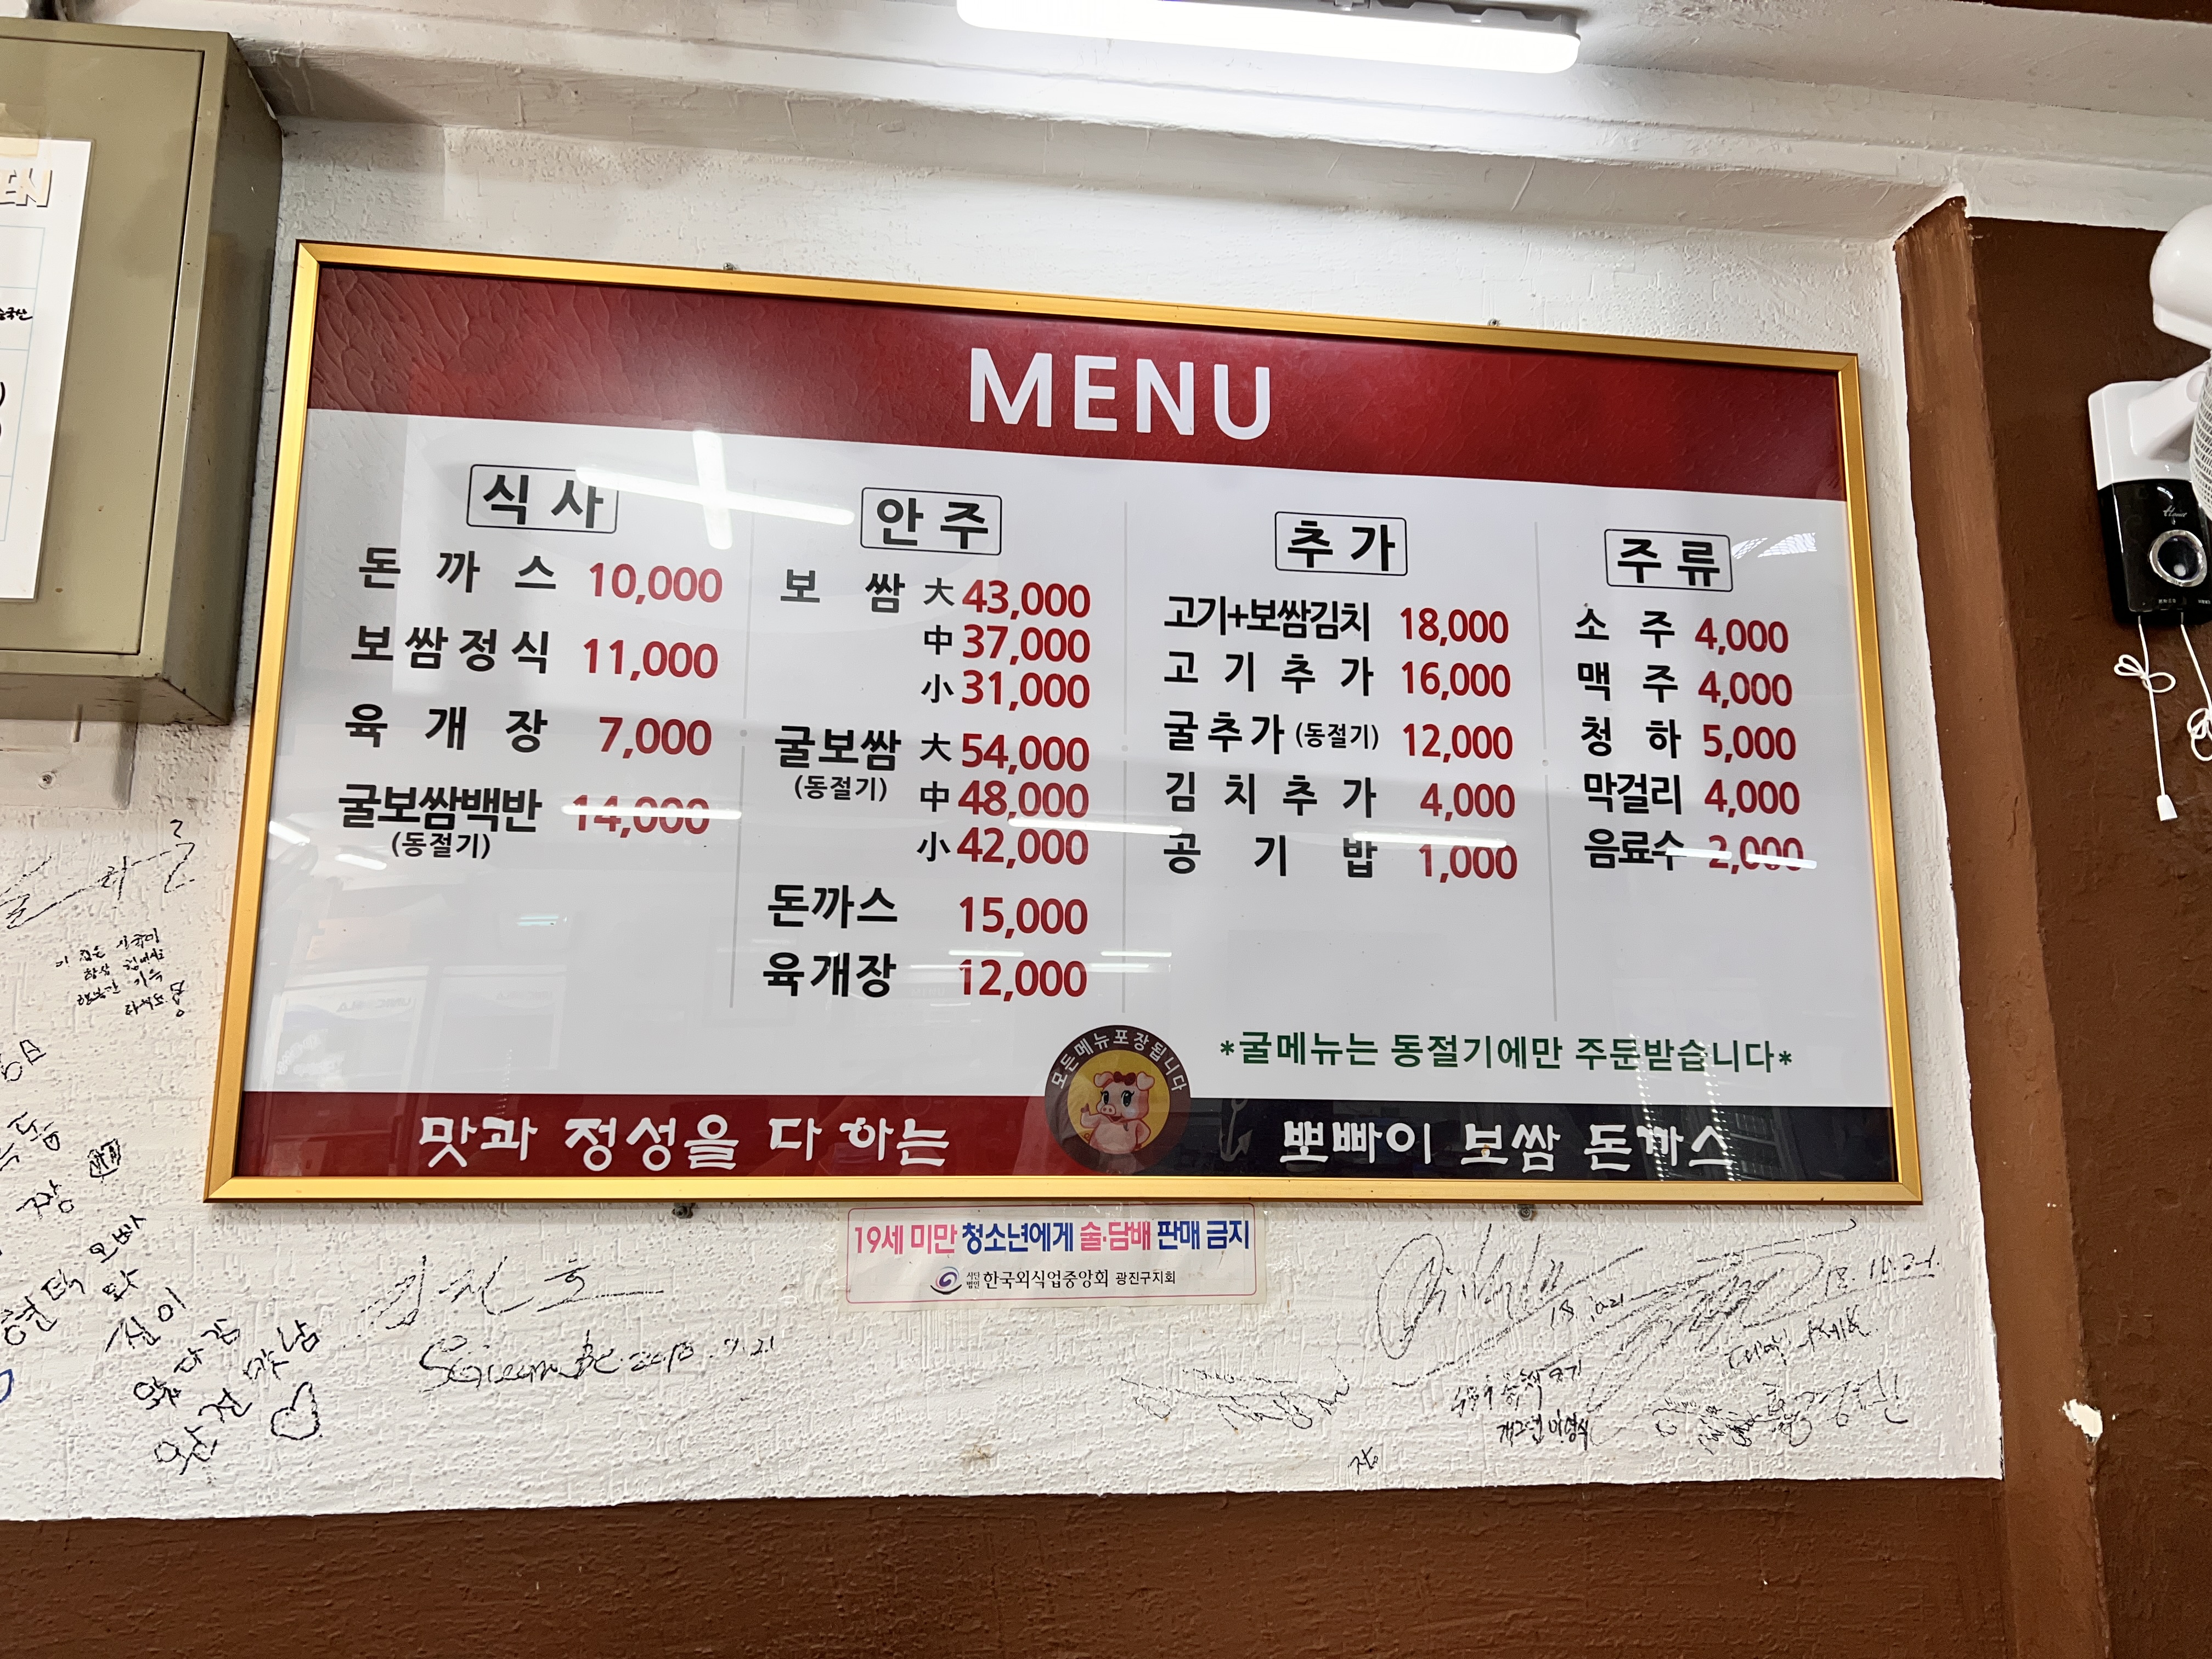 MENU
식사
돈까스 10,000
보쌈정식 11,000
육개장 7,000
굴보쌈백반 14,000
(동절기)
안주
보쌈 大 43,000
中 37,000
小 31,000
굴보쌈 大 54,000
(동절기) 中 48,000
小 42,000
돈까스 15,000
육개장 12,000
추가
고기+보쌈김치 18,000
고기추가 16,000
굴추가 (동절기) 12,000
김치추가 4,000
공기밥 1,000
주류
소주 4,000
맥주 4,000
청하 5,000
막걸리 4,000
음료수 2,000
*굴메뉴는 동절기에만 주문받습니다*
모든메뉴포장됩니다
맛과 정성을 다 하는
뽀빠이 보쌈 돈까스
19세 미만 청소년에게 술·담배 판매 금지
사단법인 한국외식업중앙회 광진구지회